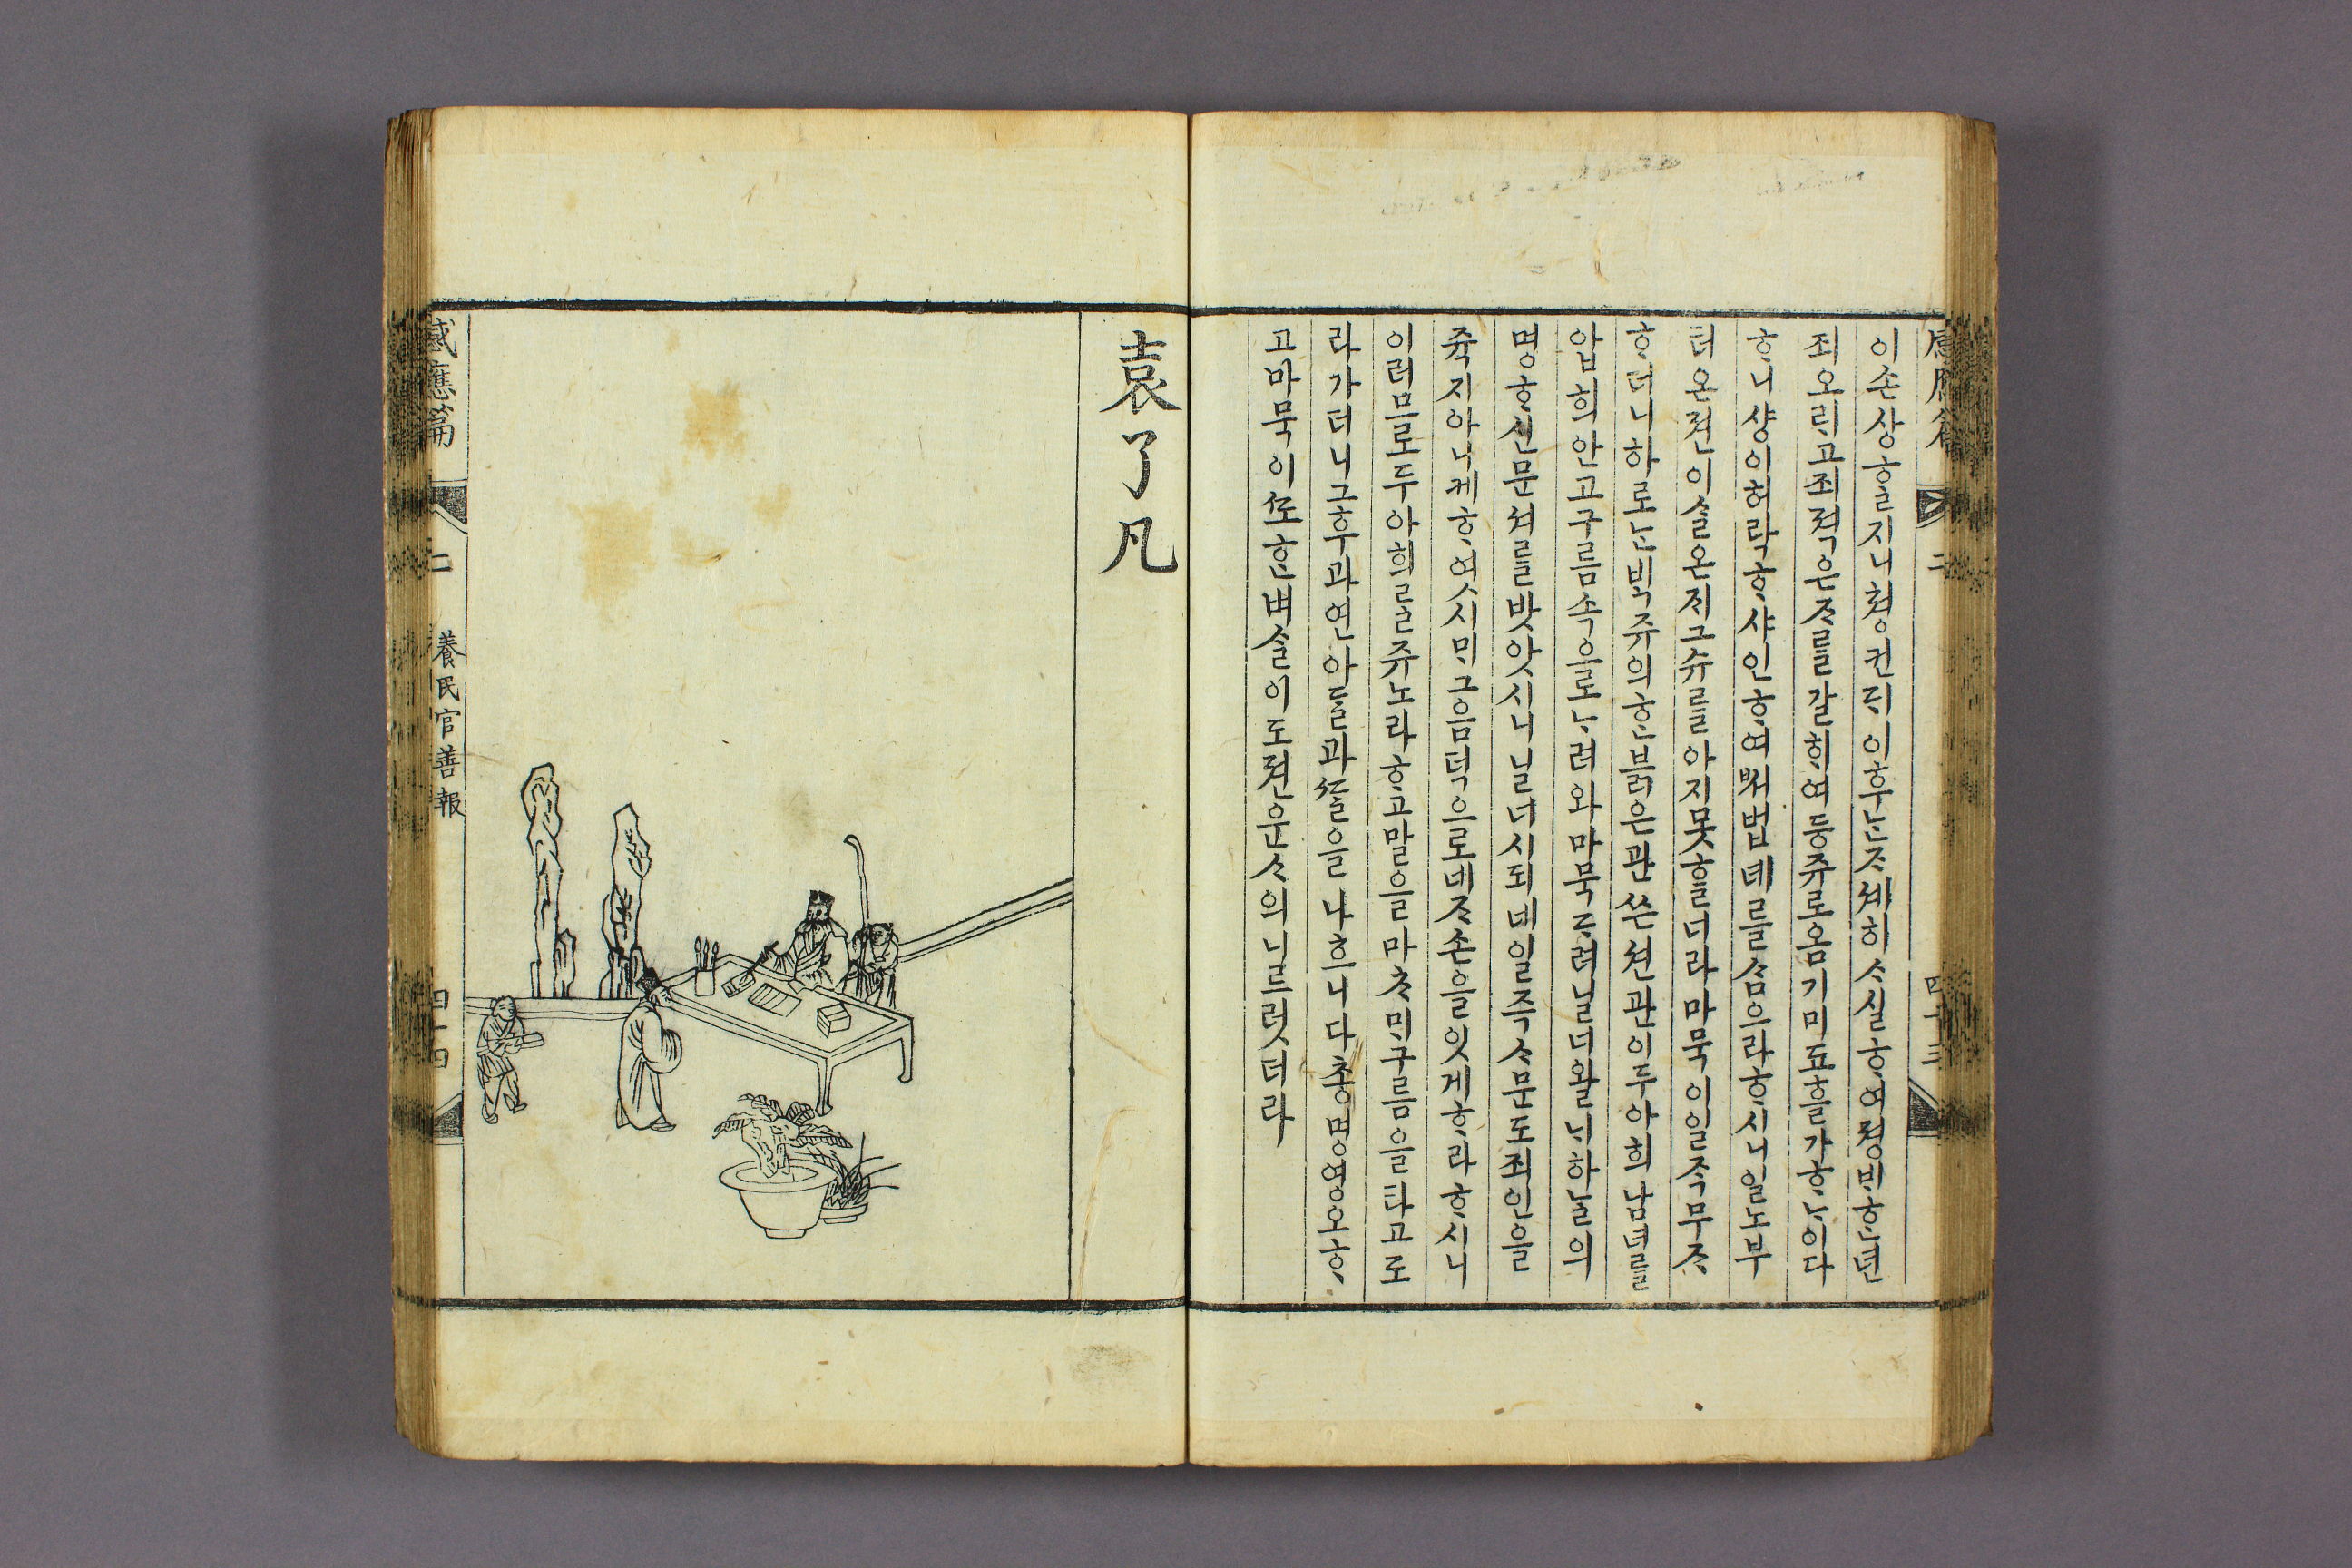 이손상ᄒᆞᆯ지니쳥컨ᄃᆡ이후ᄂᆞᆫᄌᆞ셰히ᄉᆞ실ᄒᆞ여졍ᄇᆡᄒᆞᆫ년
죄오ᄅᆡ고죄젹은ᄌᆞ를갈ᄒᆡ여등쥬로옴기미됴흘가ᄒᆞᄂᆞ이다
ᄒᆞ니샹이허락ᄒᆞ샤인ᄒᆞ여ᄡᅥ법뎨를ᄉᆞᆷ으라ᄒᆞ시니일노부
터온젼이슬온ᄌᆡ그슈를아지못ᄒᆞᆯ너라마묵이일즉무ᄌᆞ
ᄒᆞ더니하로ᄂᆞᆫᄇᆡᆨ쥬의ᄒᆞᆫ붉은관쓴션관이두아희남녀를
압희안고구름속으로ᄂᆞ려와마묵ᄃᆞ려닐너왈ᄂᆡ하ᄂᆞᆯ의
명ᄒᆞ신문셔를밧앗시니닐너시되네일즉ᄉᆞ문도죄인을
쥭지아니케ᄒᆞ여시ᄆᆡ그음덕으로네ᄌᆞ손을잇게ᄒᆞ라ᄒᆞ시니
이러므로두아희ᄅᆞᆯ쥬노라ᄒᆞ고말을마ᄎᆞᄆᆡ구름을타고도
라가더니그후과연아들과ᄯᆞᆯ을나흐니다총명영오ᄒᆞ
고마묵이ᄯᅩᄒᆞᆫ벼슬이도젼운ᄉᆞ의니르럿더라
感應篇
二
四十三
袁了凡
感應篇
二
養民官善報
四十四